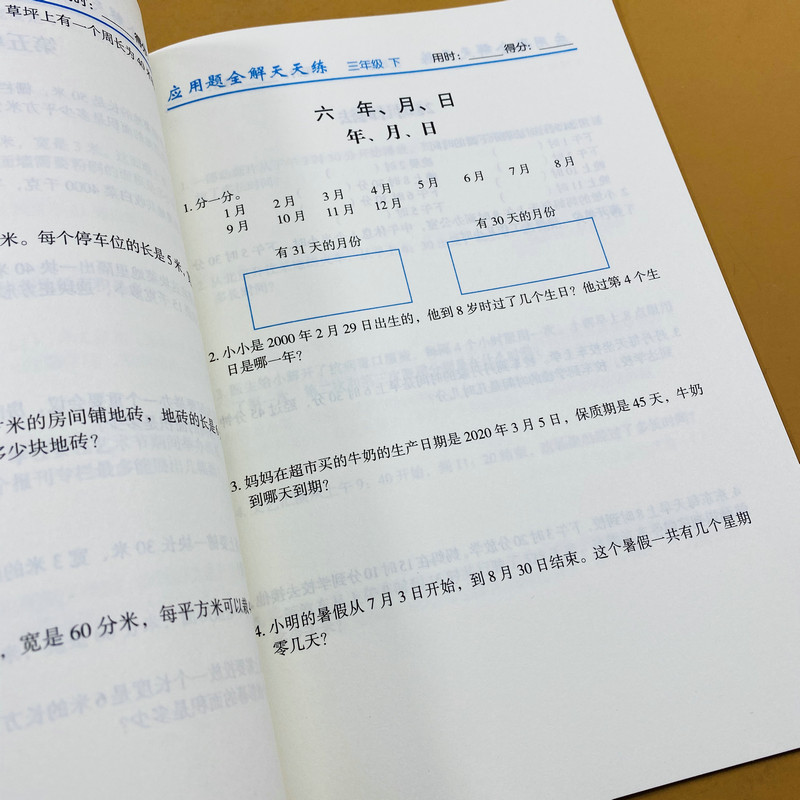 草坪上有一个周长为40
米。每个停车位的长是5米，
米的房间铺地砖，地砖的长是
多少块地砖？
，宽是60分米，每平方米可以
应用题全解天天练 三年级 下 用时：_____得分：_____
六 年、月、日
年、月、日
1. 分一分。
1月 2月 3月 4月 5月 6月 7月 8月
9月 10月 11月 12月
有31天的月份 有30天的月份
2. 小小是2000年2月29日出生的，他到8岁时过了几个生日？他过第4个生
日是哪一年？
3. 妈妈在超市买的牛奶的生产日期是2020年3月5日，保质期是45天，牛奶
到哪天到期？
4. 小明的暑假从7月3日开始，到8月30日结束。这个暑假一共有几个星期
零几天？